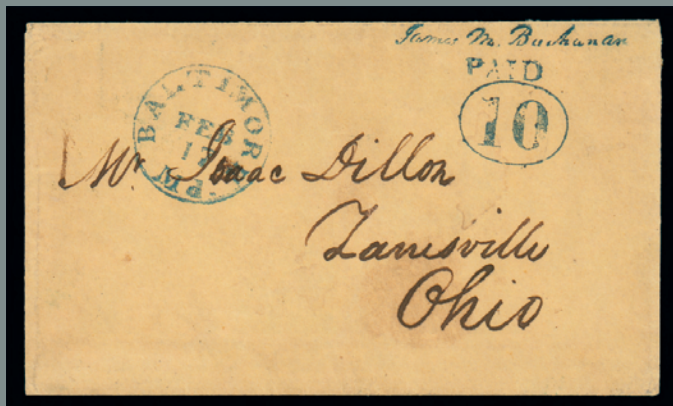 James M. Buchanan
PAID
10
BALTIMORE Md.
FEB
17
Mr. Isaac Dillon
Zanesville
Ohio